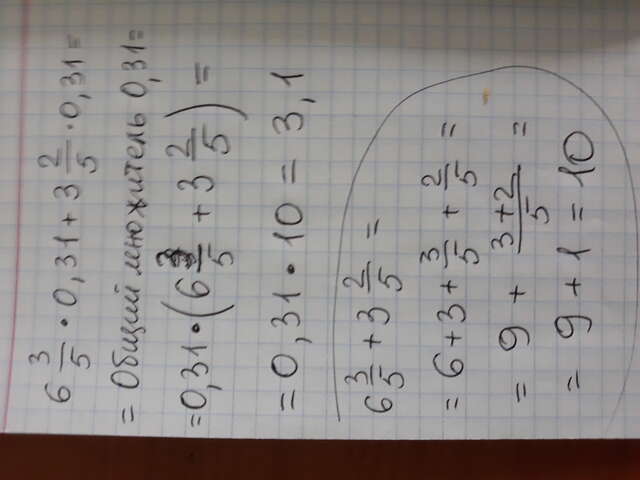 6 3/5 · 0,31 + 3 2/5 · 0,31 =
= Общий множитель 0,31 =
= 0,31 · (6 3/5 + 3 2/5) =
= 0,31 · 10 = 3,1
6 3/5 + 3 2/5 =
= 6 + 3 + 3/5 + 2/5 =
= 9 + (3+2)/5 =
= 9 + 1 = 10